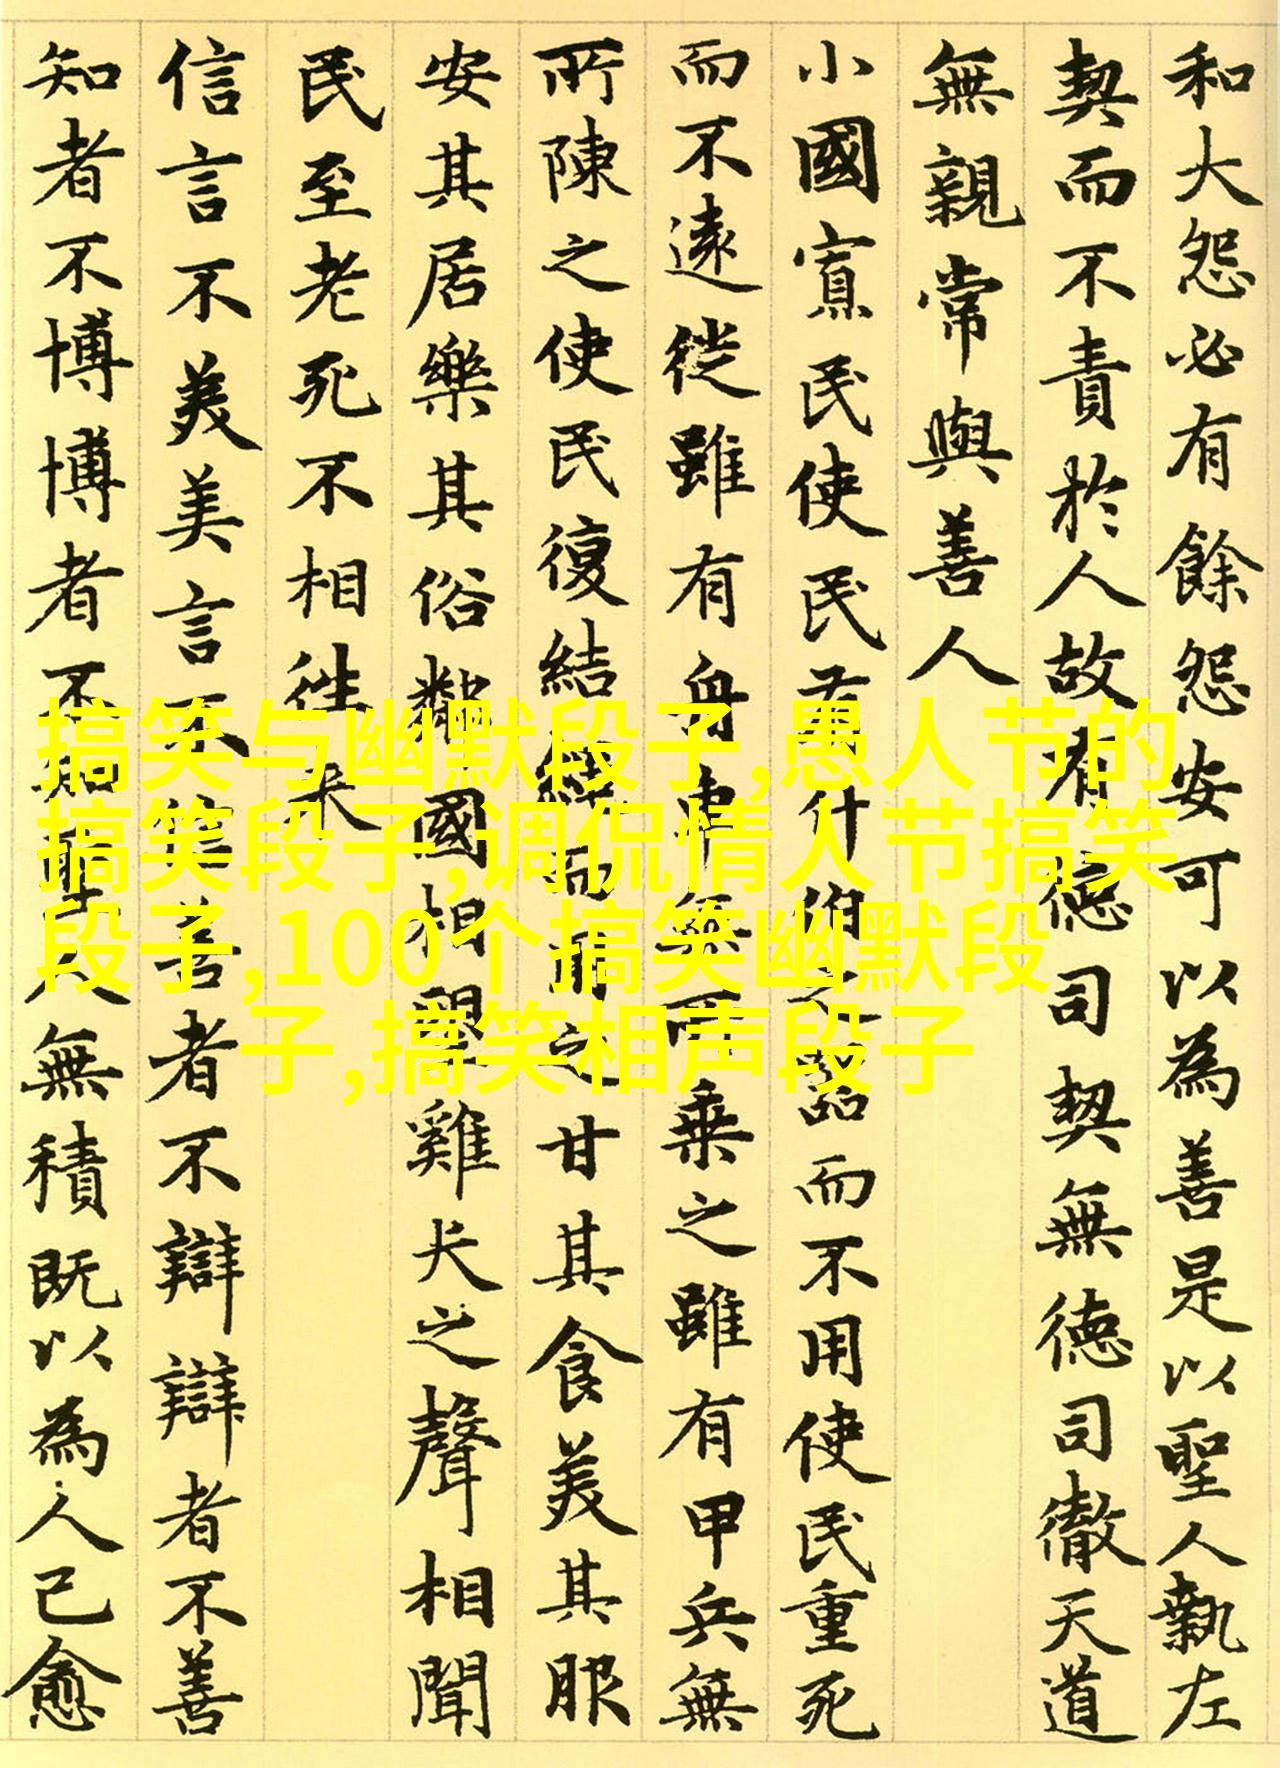 和大怨必有餘怨安可以為善是以聖人執左
契而不責於人故有德司契無德司徹天道
無親常與善人
小國寡民使民有什伯之器而不用使民重死
而不遠徙雖有舟車無所乘之雖有甲兵無
所陳之使民復結繩而用之甘其食美其服
安其居樂其俗鄰國相望雞犬之聲相聞
民至老死不相往来
信言不美美言不信善者不辯辯者不善
知者不博博者不知聖人無積既以為人己愈
搞笑与幽默段子,愚人节的
搞笑段子,调侃情人节搞笑
段子,100个搞笑幽默段
子,搞笑相声段子